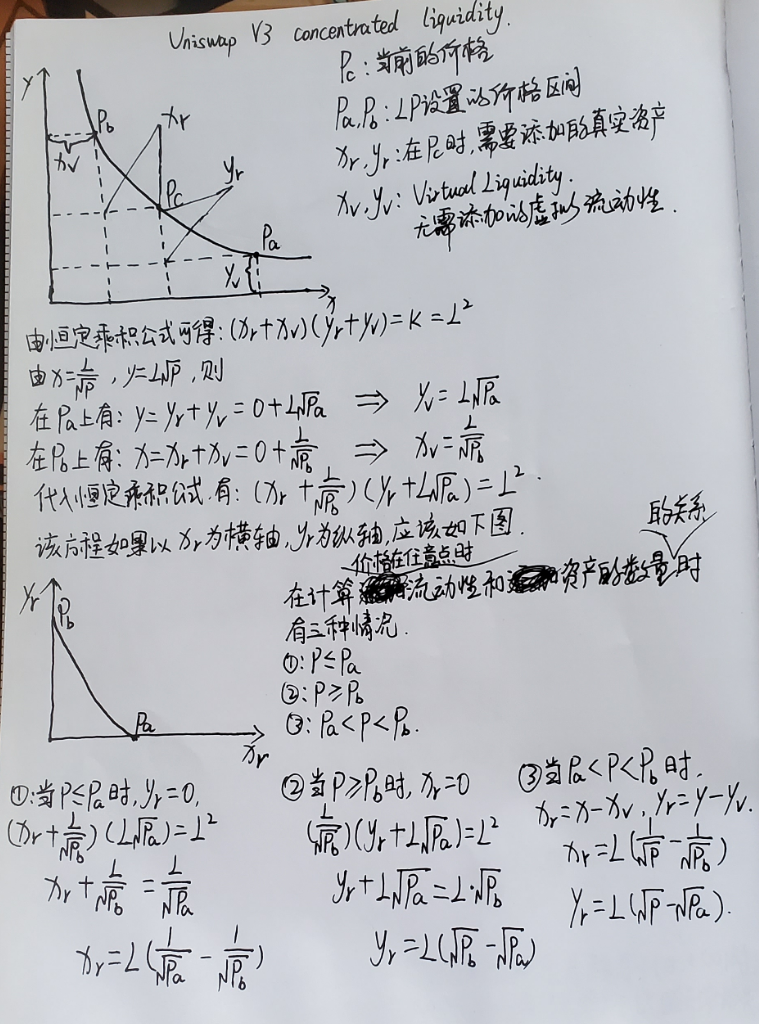 Uniswap V3 concentrated liquidity.
Pc:当前的价格
Pa,Pb:LP设置的价格区间
xr,yr:在Pc时,需要添加的真实资产
xv,yv:Virtual Liquidity.
无需添加的虚拟流动性.
y
Pb
xr
xv
Pc
yr
Pa
yv
x
由恒定乘积公式可得:(xr+xv)(yr+yv)=K=L²
由x=L/√P,y=L√P,则
在Pa上有:y=yr+yv=0+L√Pa ⟹ yv=L√Pa
在Pb上有:x=xr+xv=0+L/√Pb ⟹ xv=L/√Pb
代入恒定乘积公式.有:(xr+L/√Pb)(yr+L√Pa)=L².
该方程如果以xr为横轴,yr为纵轴,应该如下图.
yr
Pb
Pa
xr
价格在任意点时
的关系
在计算流动性和资产的数量时
有三种情况.
①:P≤Pa
②:P≥Pb
③:Pa<P<Pb.
①:当P≤Pa时,yr=0,
(xr+L/√Pb)(L√Pa)=L²
xr+L/√Pb=L/√Pa
xr=L(1/√Pa-1/√Pb)
②当P≥Pb时,xr=0
(L/√Pb)(yr+L√Pa)=L²
yr+L√Pa=L·√Pb
yr=L(√Pb-√Pa)
③当Pa<P<Pb时,
xr=x-xv,yr=y-yv.
xr=L(1/√P-1/√Pb)
yr=L(√P-√Pa).